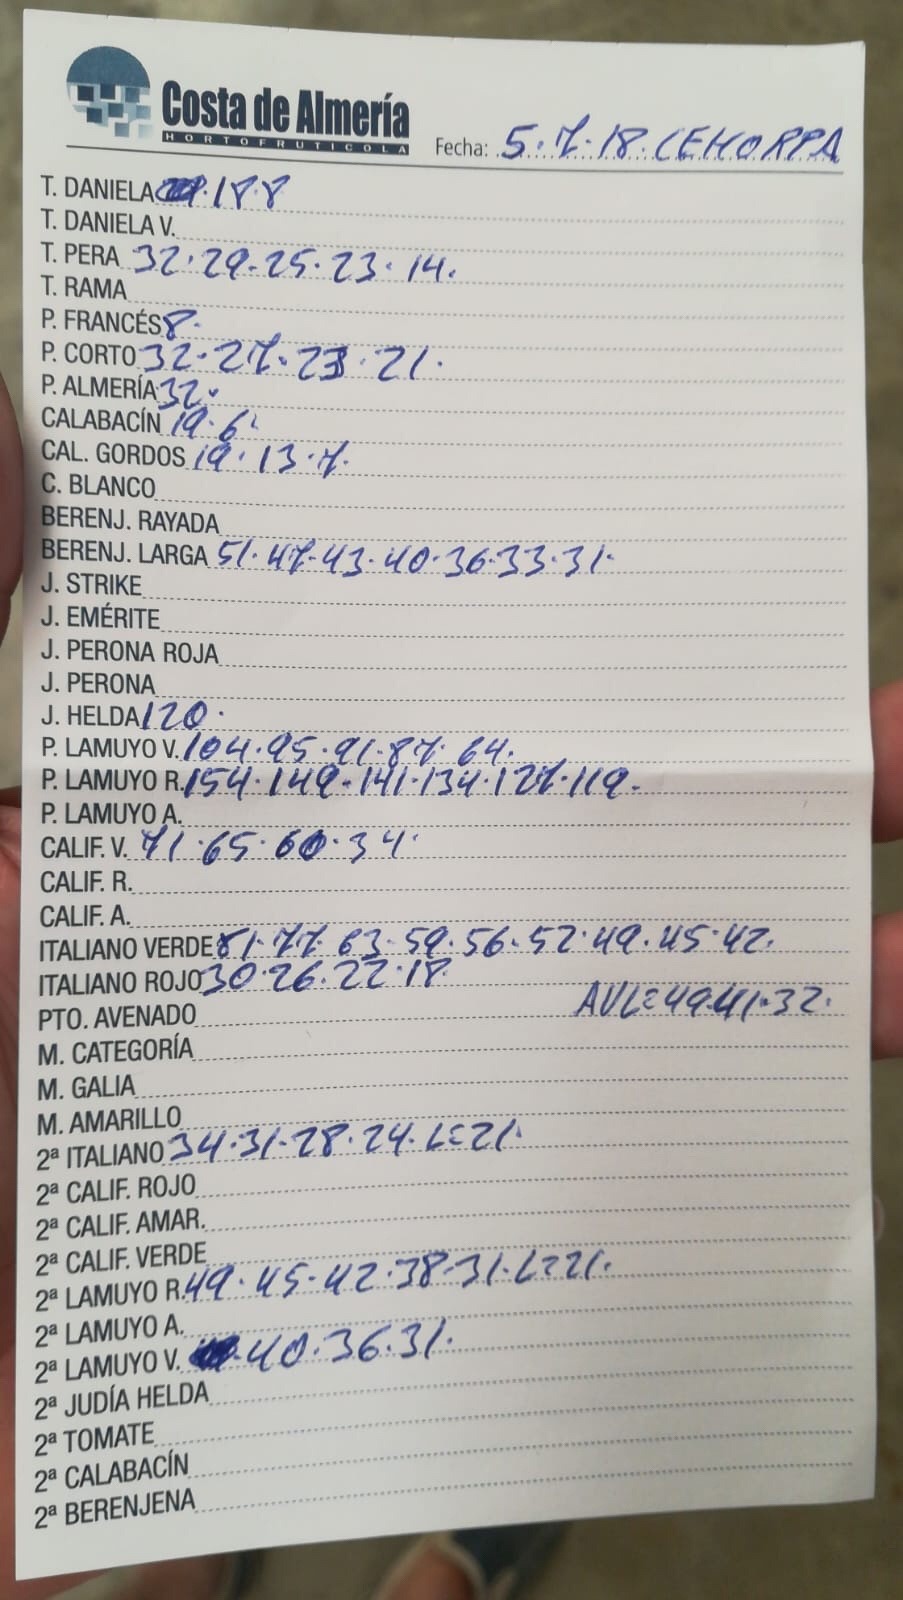 Costa de Almería
HORTOFRUTICOLA
Fecha: 5.7.18. CEHORPA
T. DANIELA .188
T. DANIELA V.
T. PERA 32.29.25.23.14.
T. RAMA
P. FRANCÉS 8.
P. CORTO 32.27.23.21.
P. ALMERÍA 32.
CALABACÍN 19.6.
CAL. GORDOS 19.13.7.
C. BLANCO
BERENJ. RAYADA
BERENJ. LARGA 51.47.43.40.36.33.31.
J. STRIKE
J. EMÉRITE
J. PERONA ROJA
J. PERONA
J. HELDA 120.
P. LAMUYO V. 104.95.91.87.64.
P. LAMUYO R. 154.149.141.134.127.119.
P. LAMUYO A.
CALIF. V. 71.65.60.34.
CALIF. R.
CALIF. A.
ITALIANO VERDE 81.77.63.59.56.52.49.45.42.
ITALIANO ROJO 30.26.22.18.
PTO. AVENADO AVL=49.41.32.
M. CATEGORÍA
M. GALIA
M. AMARILLO
2ª ITALIANO 34.31.28.24.L=21.
2ª CALIF. ROJO
2ª CALIF. AMAR.
2ª CALIF. VERDE
2ª LAMUYO R. 49.45.42.38.31.L=21.
2ª LAMUYO A.
2ª LAMUYO V. .40.36.31.
2ª JUDÍA HELDA
2ª TOMATE
2ª CALABACÍN
2ª BERENJENA